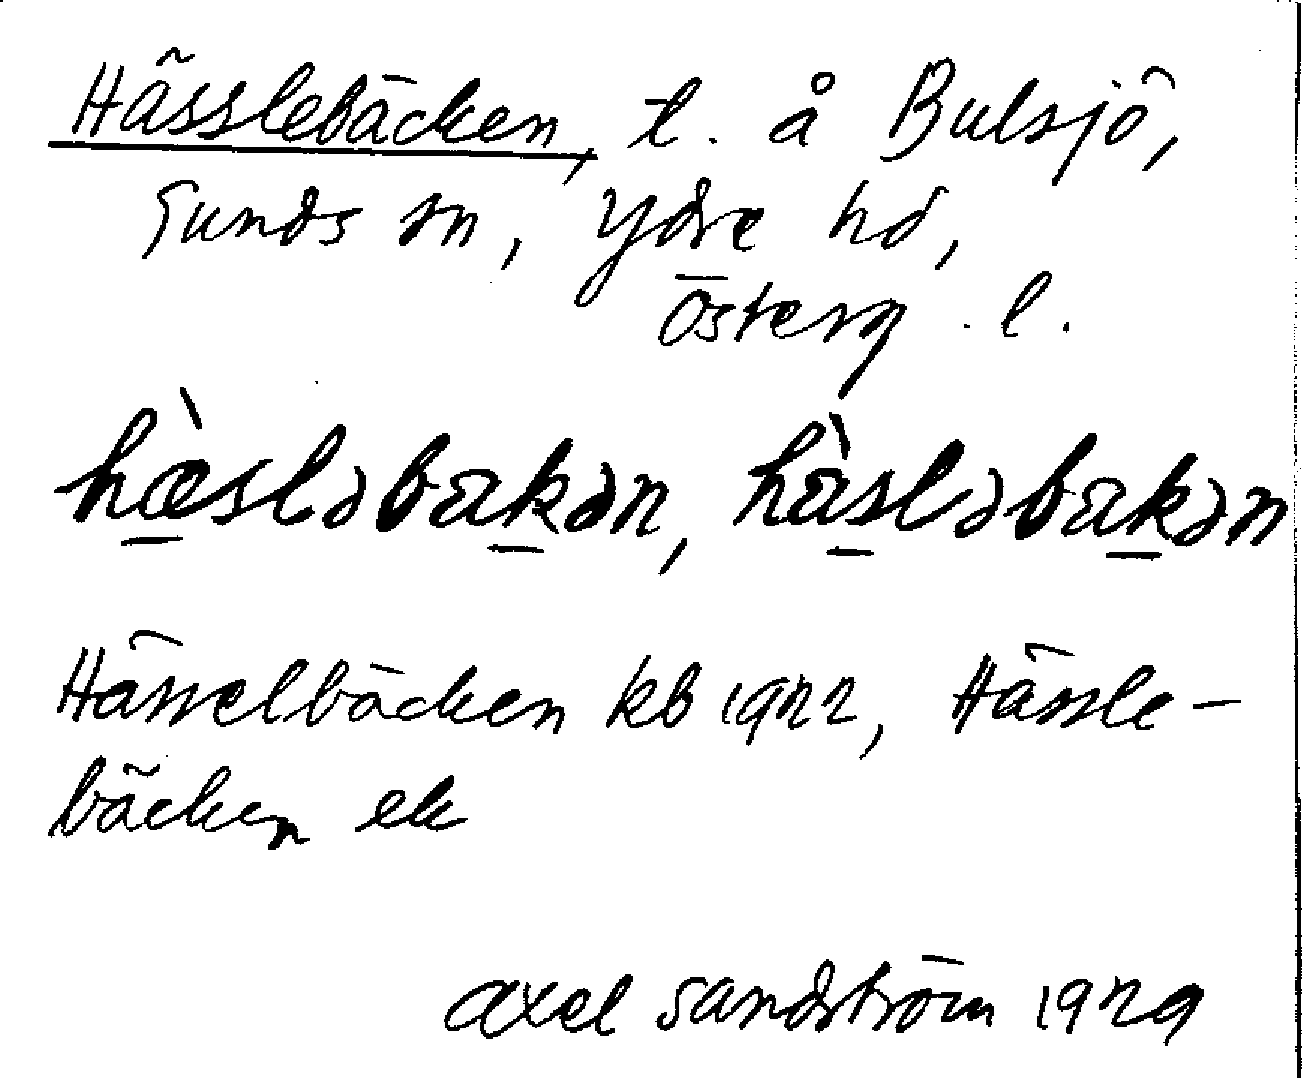 Hässlebäcken, t. å Bulsjö,
Sunds sn, Ydre hd,
Österg. l.
hæ̀sləbakən, hàsləbakən
Hässelbäcken kb 1922, Hässle-
bäcken ek
Axel Sandström 1929